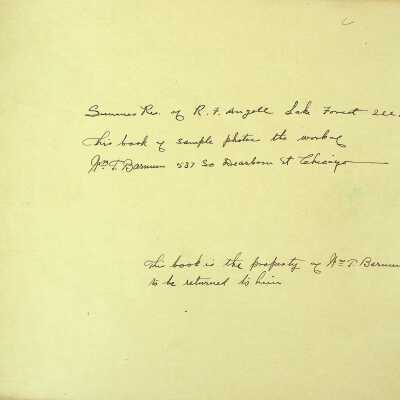 Summer Res. of R. F. Angell Lake Forest Ill.
This book of sample photos the work of
Wm T. Barnum 537 So Dearborn St Chicago
This book is the property of Wm T Barnum
to be returned to him